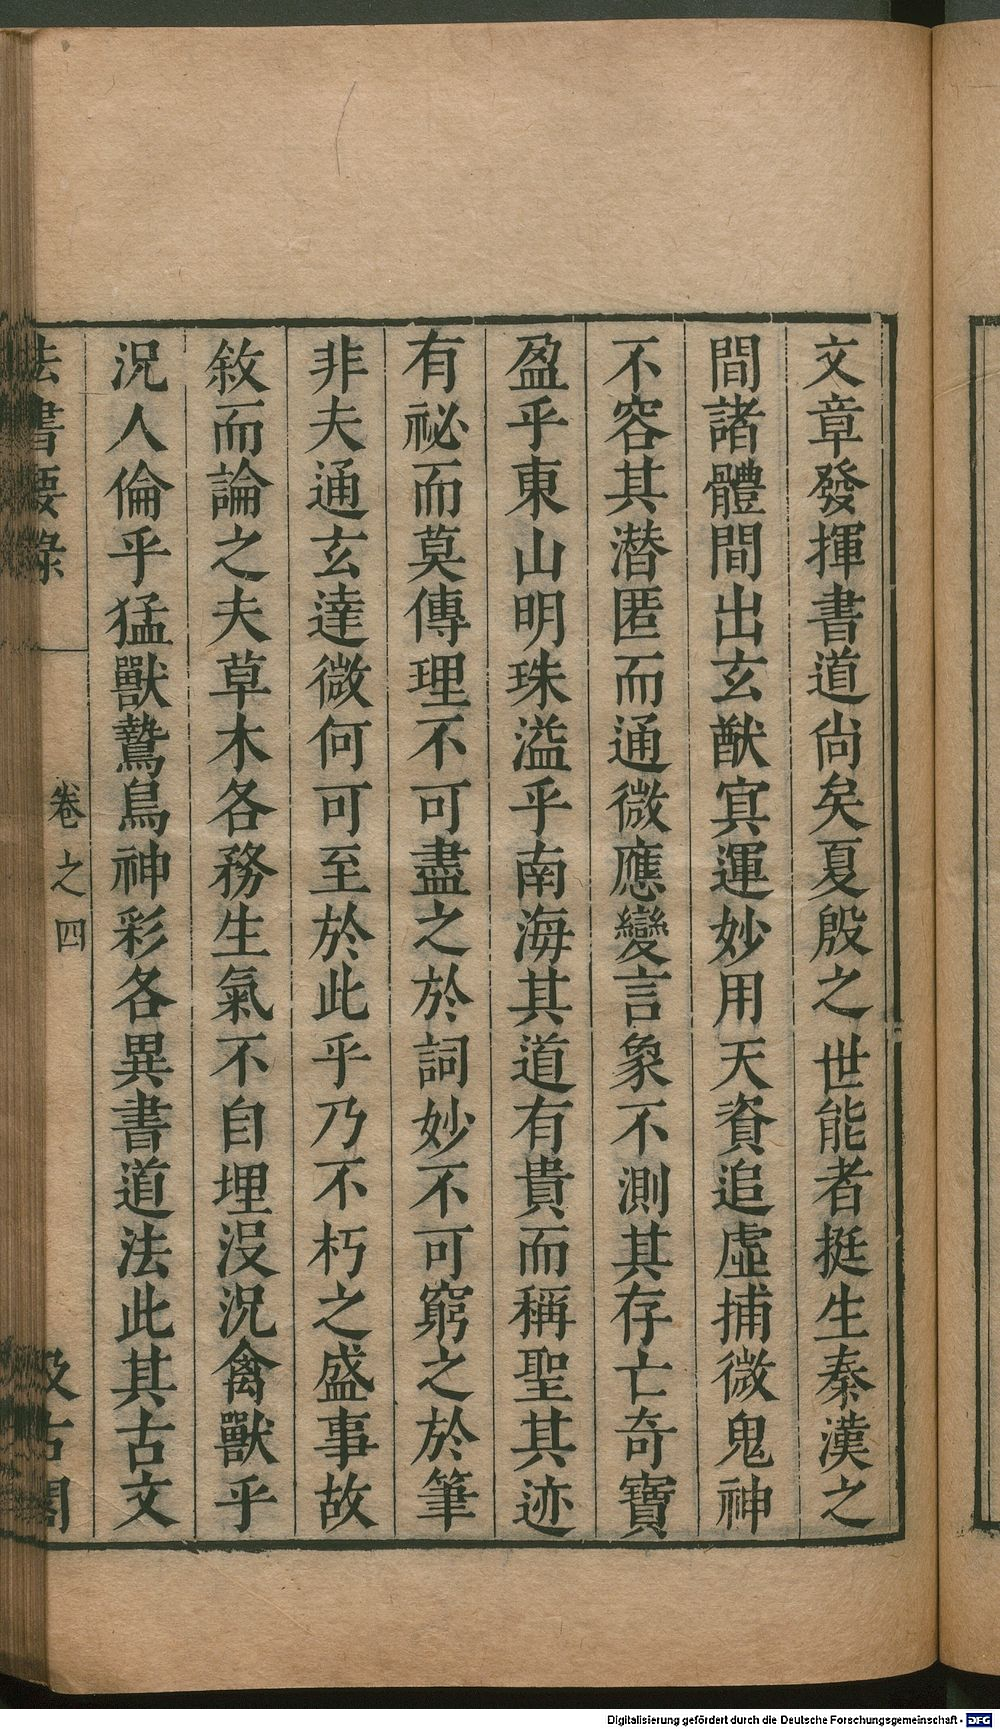 文章發揮書道尚矣夏殷之世能者挺生秦漢之
間諸體間出玄猷冥運妙用天資追虛捕微鬼神
不容其潛匿而通微應變言象不測其存亡奇寶
盈乎東山明珠溢乎南海其道有貴而稱聖其迹
有祕而莫傳理不可盡之於詞妙不可窮之於筆
非夫通玄達微何可至於此乎乃不朽之盛事故
敘而論之夫草木各務生氣不自埋没況禽獸乎
況人倫乎猛獸鷙鳥神彩各異書道法此其古文
法書要錄 卷之四 汲古閣
Digitalisierung gefördert durch die Deutsche Forschungsgemeinschaft - DFG